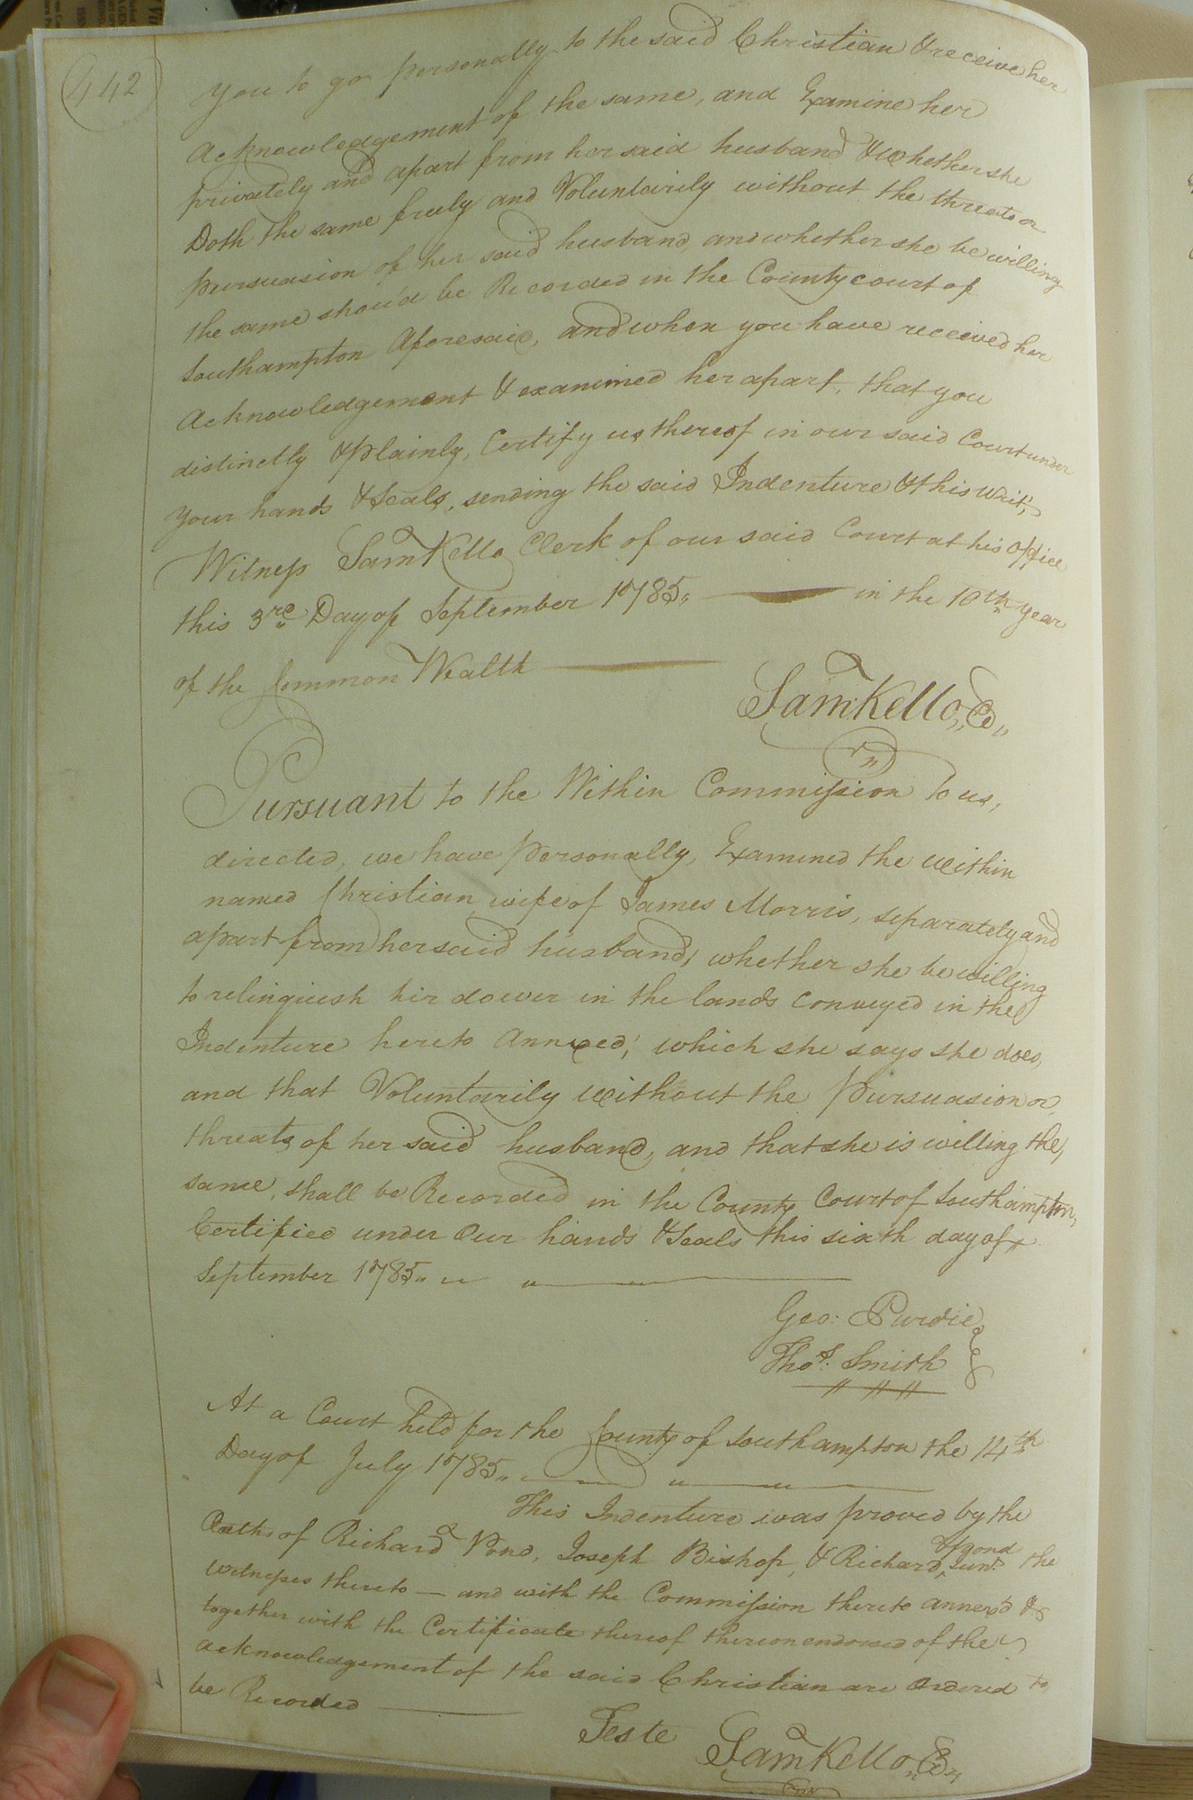 442
You to go personally to the said Christian & receive her
Acknowledgement of the same, and Examine her
privately and apart from her said husband & whether she
Doth the same freely and Voluntarily without the threats or
pursuasion of her said husband, and whether she be willing
the same should be Recorded in the County court of
Southampton Aforesaid, and when you have received her
Acknowledgement & examined her apart, that you
distinctly & plainly, Certify us thereof in our said Court under
Your hands & Seals, sending the said Indenture & this writ,
Witness Sam Kello Clerk of our said Court at his office
this 3rd Day of September 1785 in the 10th year
of the Common Wealth
Sam: Kello, C
Pursuant to the Within Commission to us,
directed, we have personally, Examined the within
named Christian wife of James Morris, separately and
apart from her said husband, whether she be willing
to relinquish hir dower in the lands conveyed in the
Indenture hereto Annexed; which she says she does,
and that Voluntarily without the Pursuasion or
threats of her said husband, and that she is willing the
same, shall be Recorded in the County Court of Southampton,
Certified under Our hands & Seals this sixth day of
September 1785
Geo: Purdie
Thos. Smith
At a Court held for the County of Southampton the 14th
Day of July 1785
This Indenture was proved by the
Oaths of Richard Pond, Joseph Bishop, & Richard Pond Junr. the
witnesses thereto — and with the Commission thereto annex'd &
together with the Certificate thereof thereon endorsed of the
acknowledgement of the said Christian are Ordered to
be Recorded
Teste Sam Kello, C